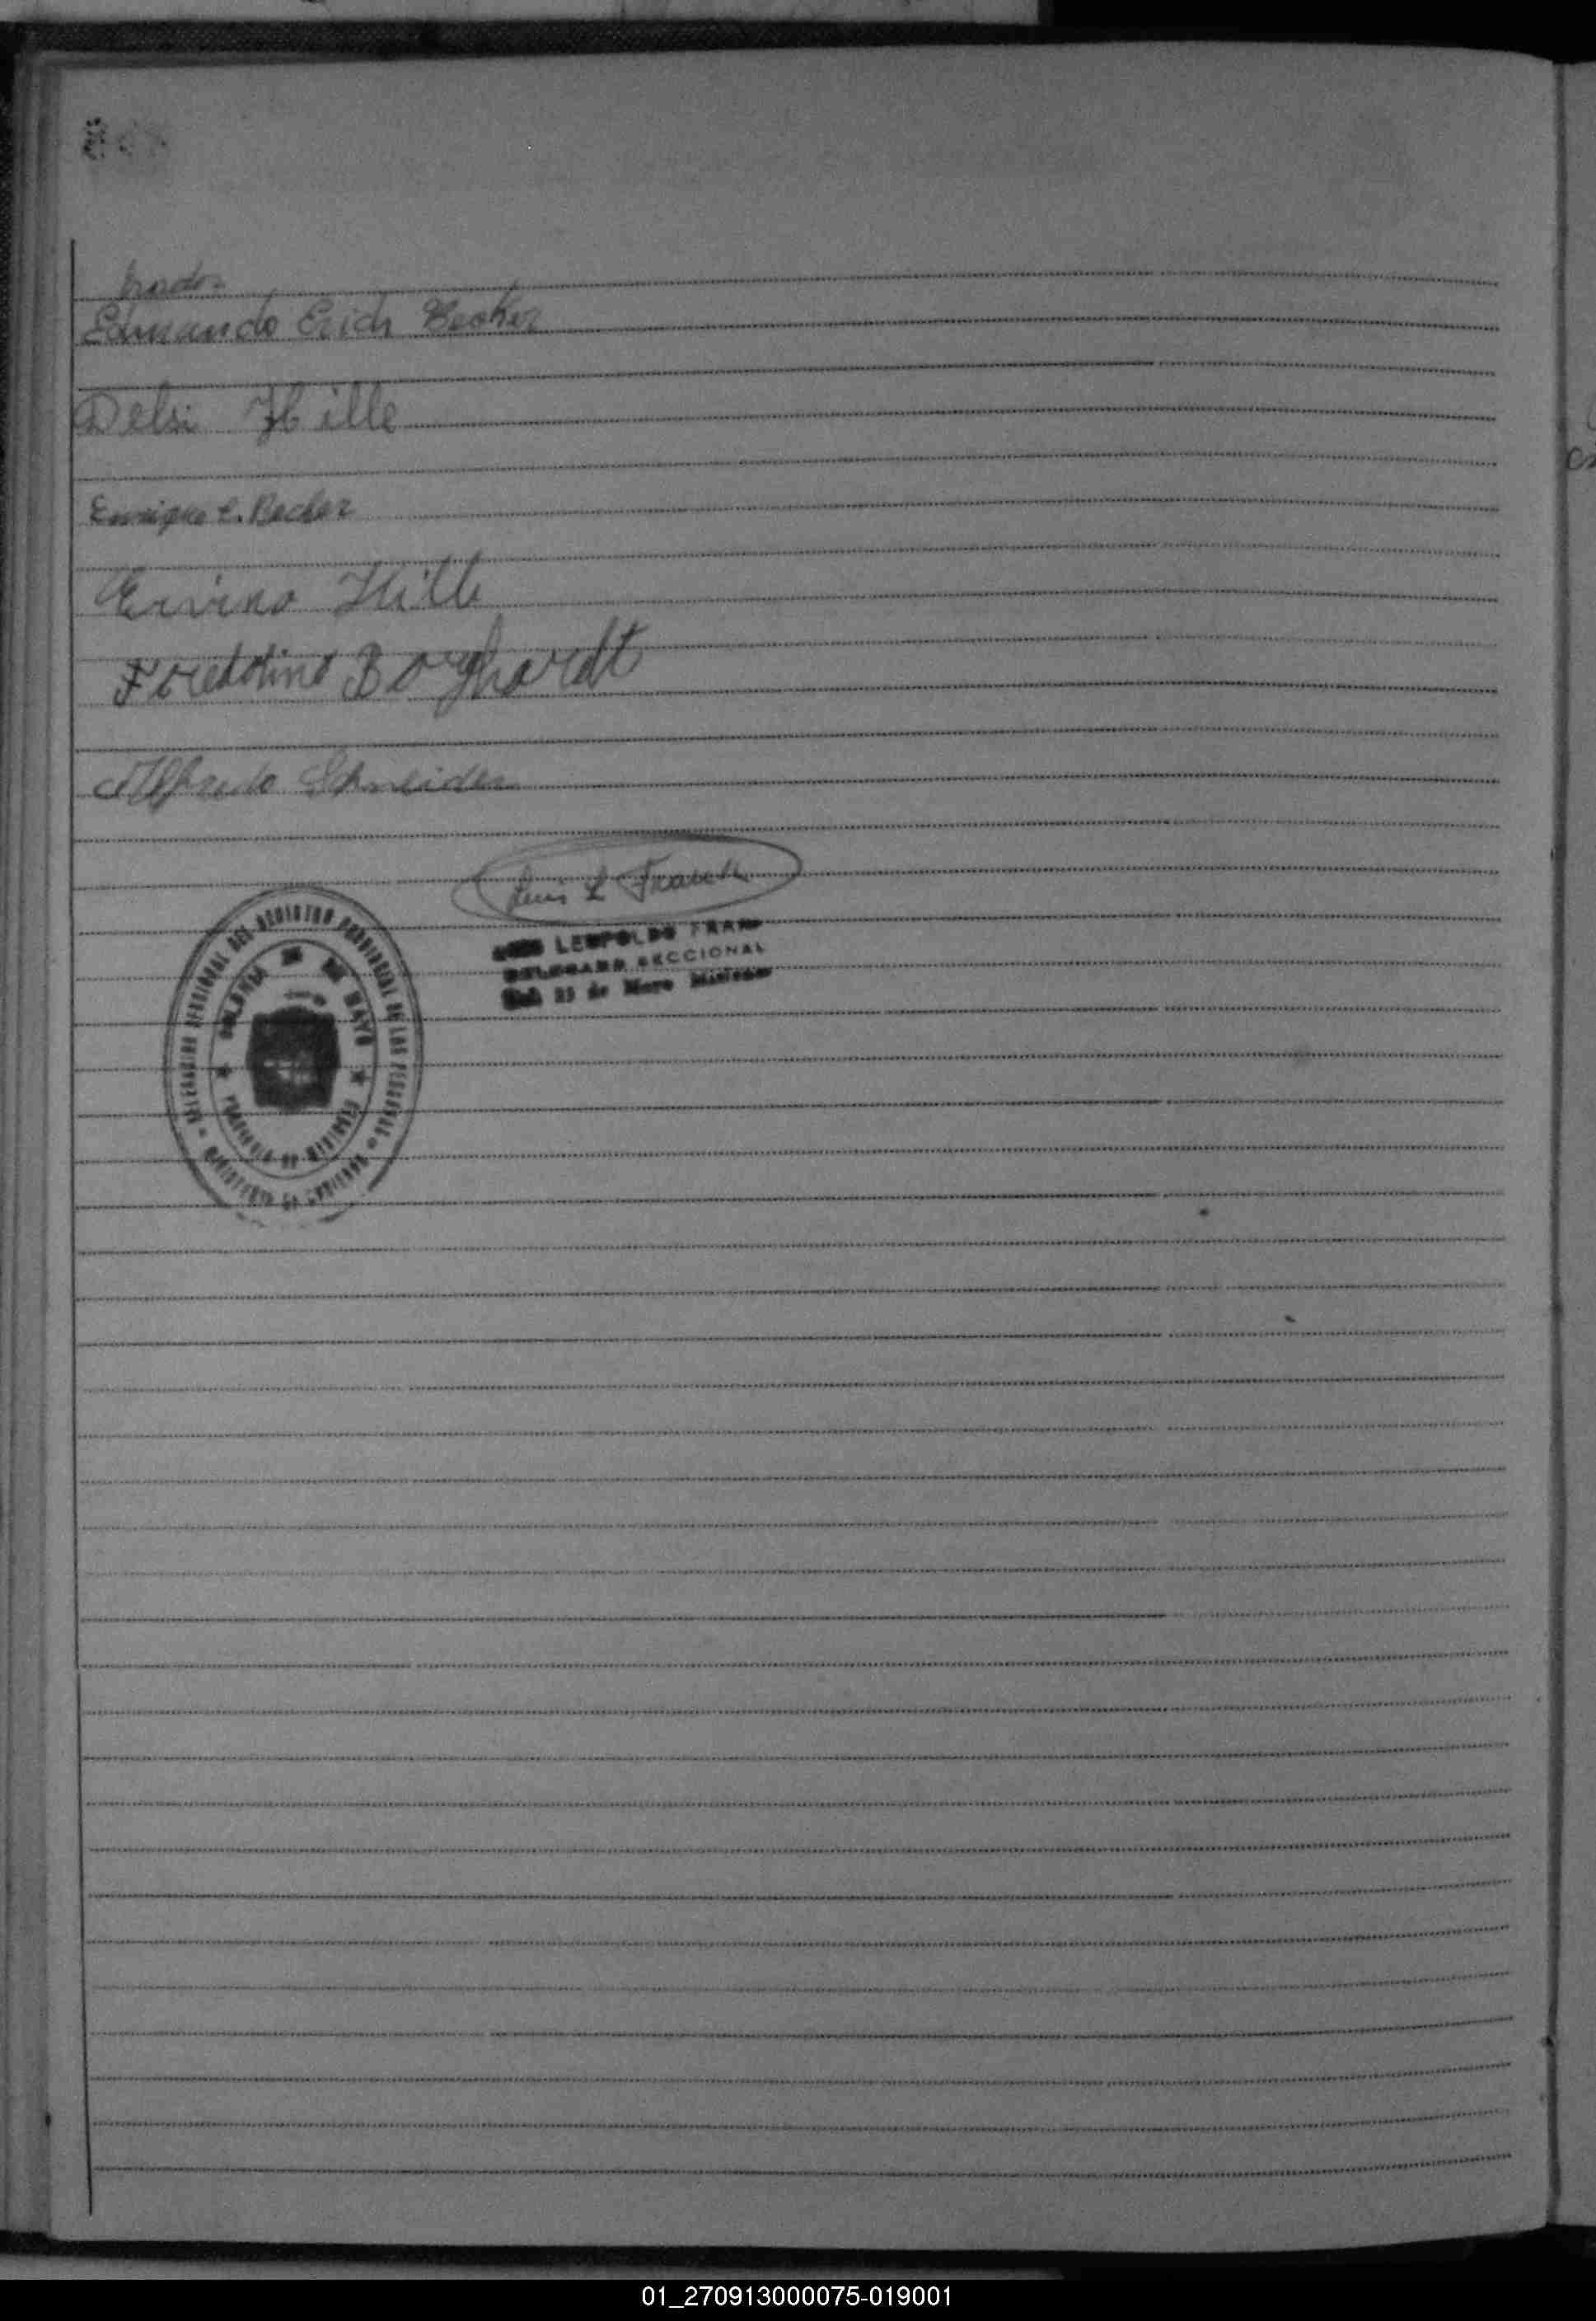 Edmundo Erich Becker
Delsi Hille
Enrique E. Becker
Ervino Hille
Borghardt
Alfredo Schneider
Luis L Franck
LEOPOLDO FRAN
DELEGADO SECCIONAL
25 de Mayo Misiones
DELEGACION SECCIONAL DEL REGISTRO PROVINCIAL DE LAS PERSONAS
COLONIA 25 DE MAYO
PROVINCIA DE MISIONES
01_270913000075-019001